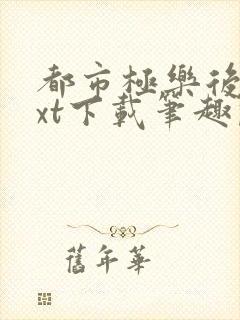 都市極樂後
xt下載筆趣
舊年華